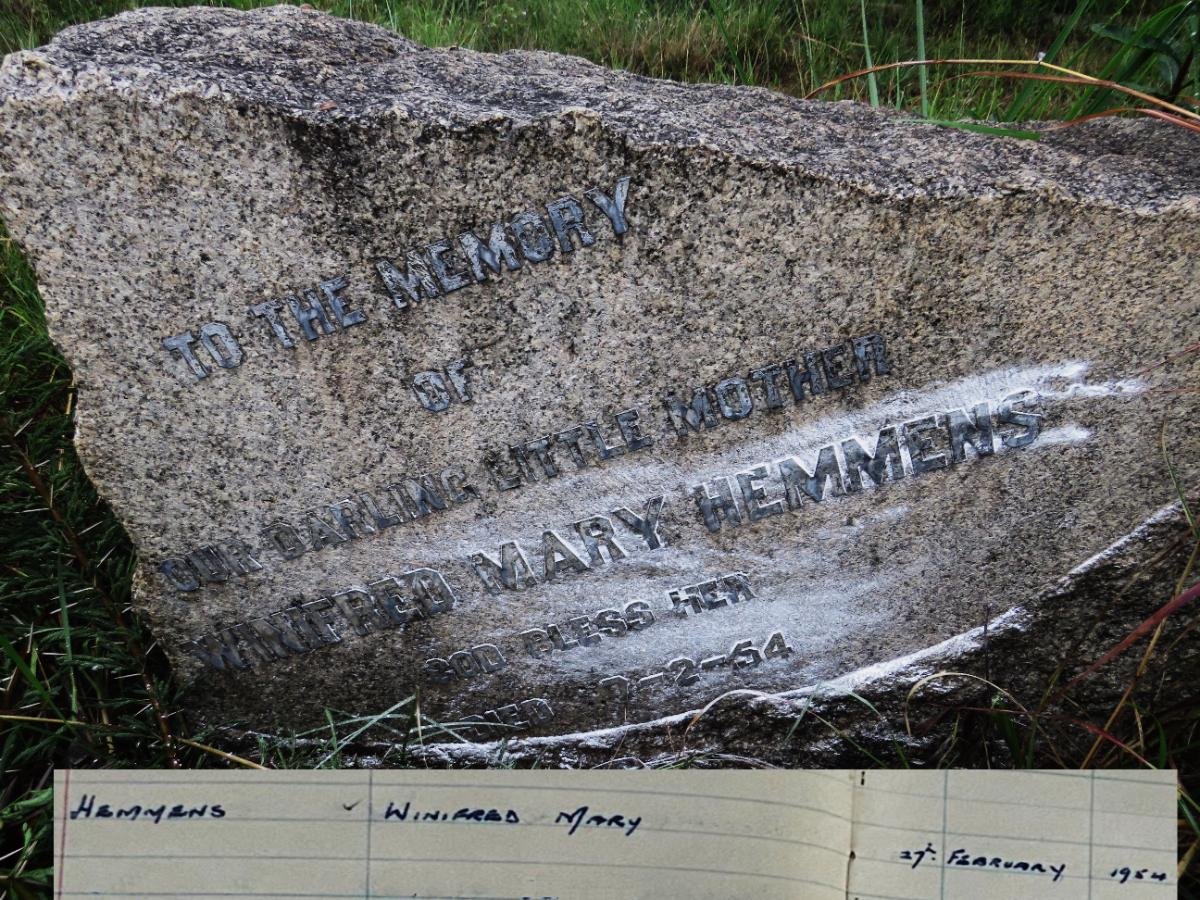 TO THE MEMORY
OF
OUR DARLING LITTLE MOTHER
WINIFRED MARY HEMMENS
GOD BLESS HER
DIED 7-2-54
HEMMENS ✓ WINIFRED MARY
27th. FEBRUARY 1954